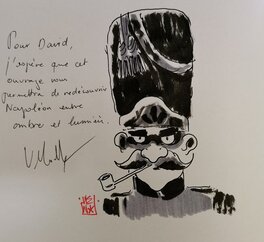 Pour David,
j'espère que cet
ouvrage vous
permettra de redécouvrir
Napoléon entre
ombre et lumière.